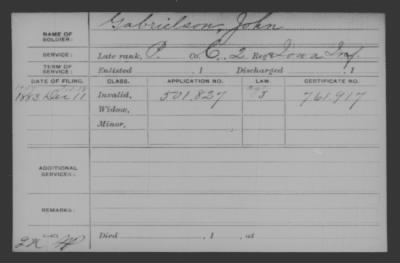 NAME OF SOLDIER: Gabrielson, John
SERVICE: Late rank, P. Co. C, 2 Reg't Iowa Inf.
TERM OF SERVICE: Enlisted , 1 Discharged , 1
DATE OF FILING. CLASS. APPLICATION NO. LAW. CERTIFICATE NO.
1883 Dec 11 Invalid, 501.827 761.917
Widow,
Minor,
ADDITIONAL SERVICES:
REMARKS:
Died , 1 , at